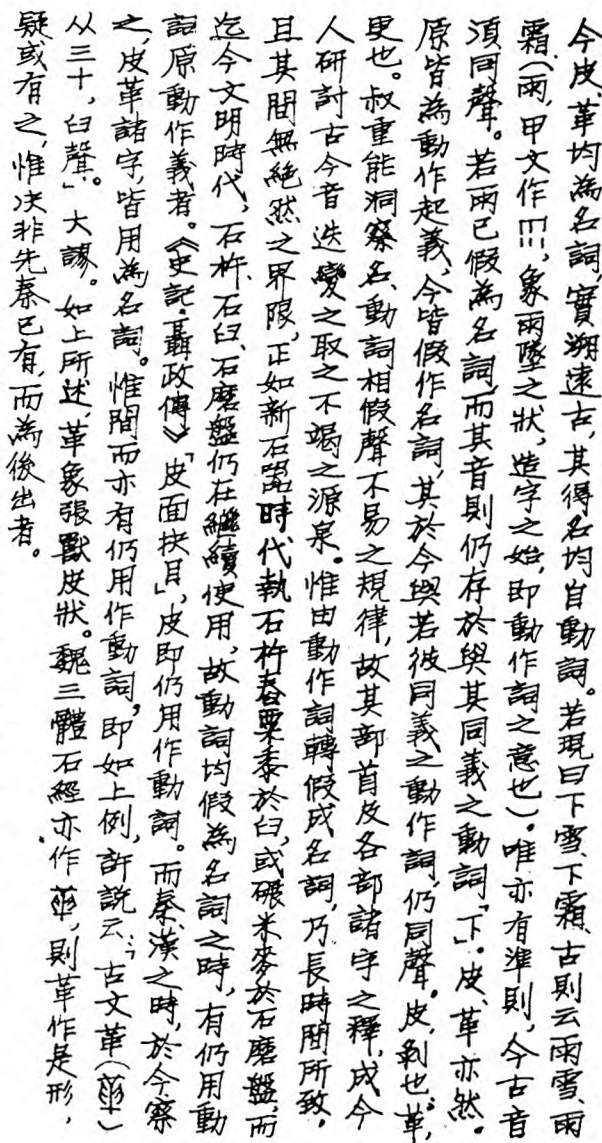 今皮、革均為名詞,實溯遠古,其得名均自動詞。若現曰下雪、下霜、古則云雨雪、雨
霜(雨,甲文作,象雨墜之狀,造字之始,即動作詞之意也)。唯亦有準則,今古音
須同聲。若雨已假為名詞,而其音則仍存於與其同義之動詞「下」。皮、革亦然。
原皆為動作起義,今皆假作名詞,其於今與若彼同義之動作詞,仍同聲。皮,剝也;革,
更也。叔重能洞察名、動詞相假聲不易之規律,故其部首及各部諸字之釋,成今
人研討古今音迭變之取之不竭之源泉。惟由動作詞轉假成名詞,乃長時間所致,
且其間無絕然之界限,正如新石器時代執石杵舂粟黍於臼,或碾米麥於石磨盤,而
迄今文明時代,石杵、石臼、石磨盤仍在繼續使用,故動詞均假為名詞之時,有仍用動
詞原動作義者。《史記·聶政傳》「皮面抉目」,皮即仍用作動詞。而秦漢之時,於今察
之,皮革諸字,皆用為名詞。惟間而亦有仍用作動詞,即如上例,許說云:「古文革()
从三十,臼聲。」大謬。如上所述,革象張獸皮狀。魏三體石經亦作,則革作是形,
疑或有之,惟決非先秦已有,而為後出者。